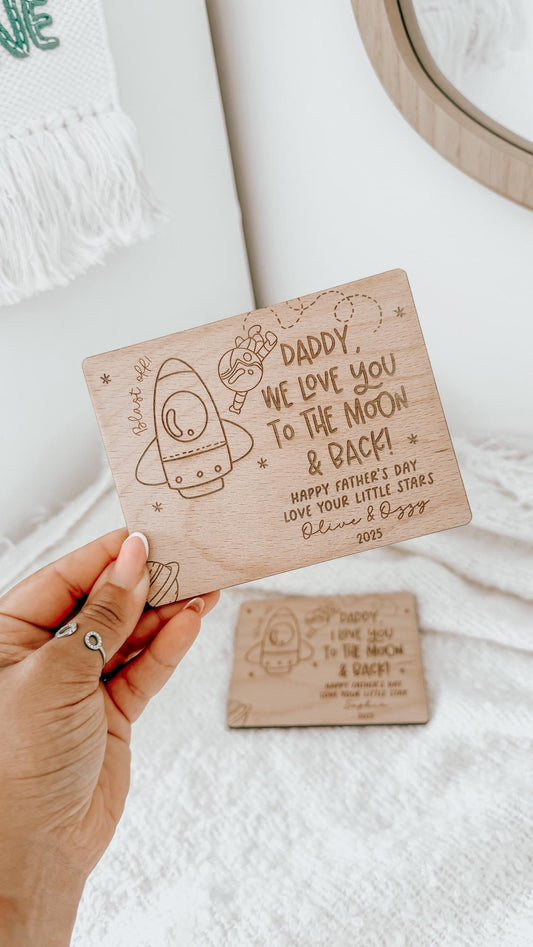 VE
Blast off!
DADDY,
WE LOVE YOU
TO THE MOON
& BACK!
HAPPY FATHER'S DAY
LOVE YOUR LITTLE STARS
Olive & Ozzy
2025
DADDY,
I LOVE YOU
TO THE MOON
& BACK!
HAPPY FATHER'S DAY
LOVE YOUR LITTLE STAR
Sophia
2025